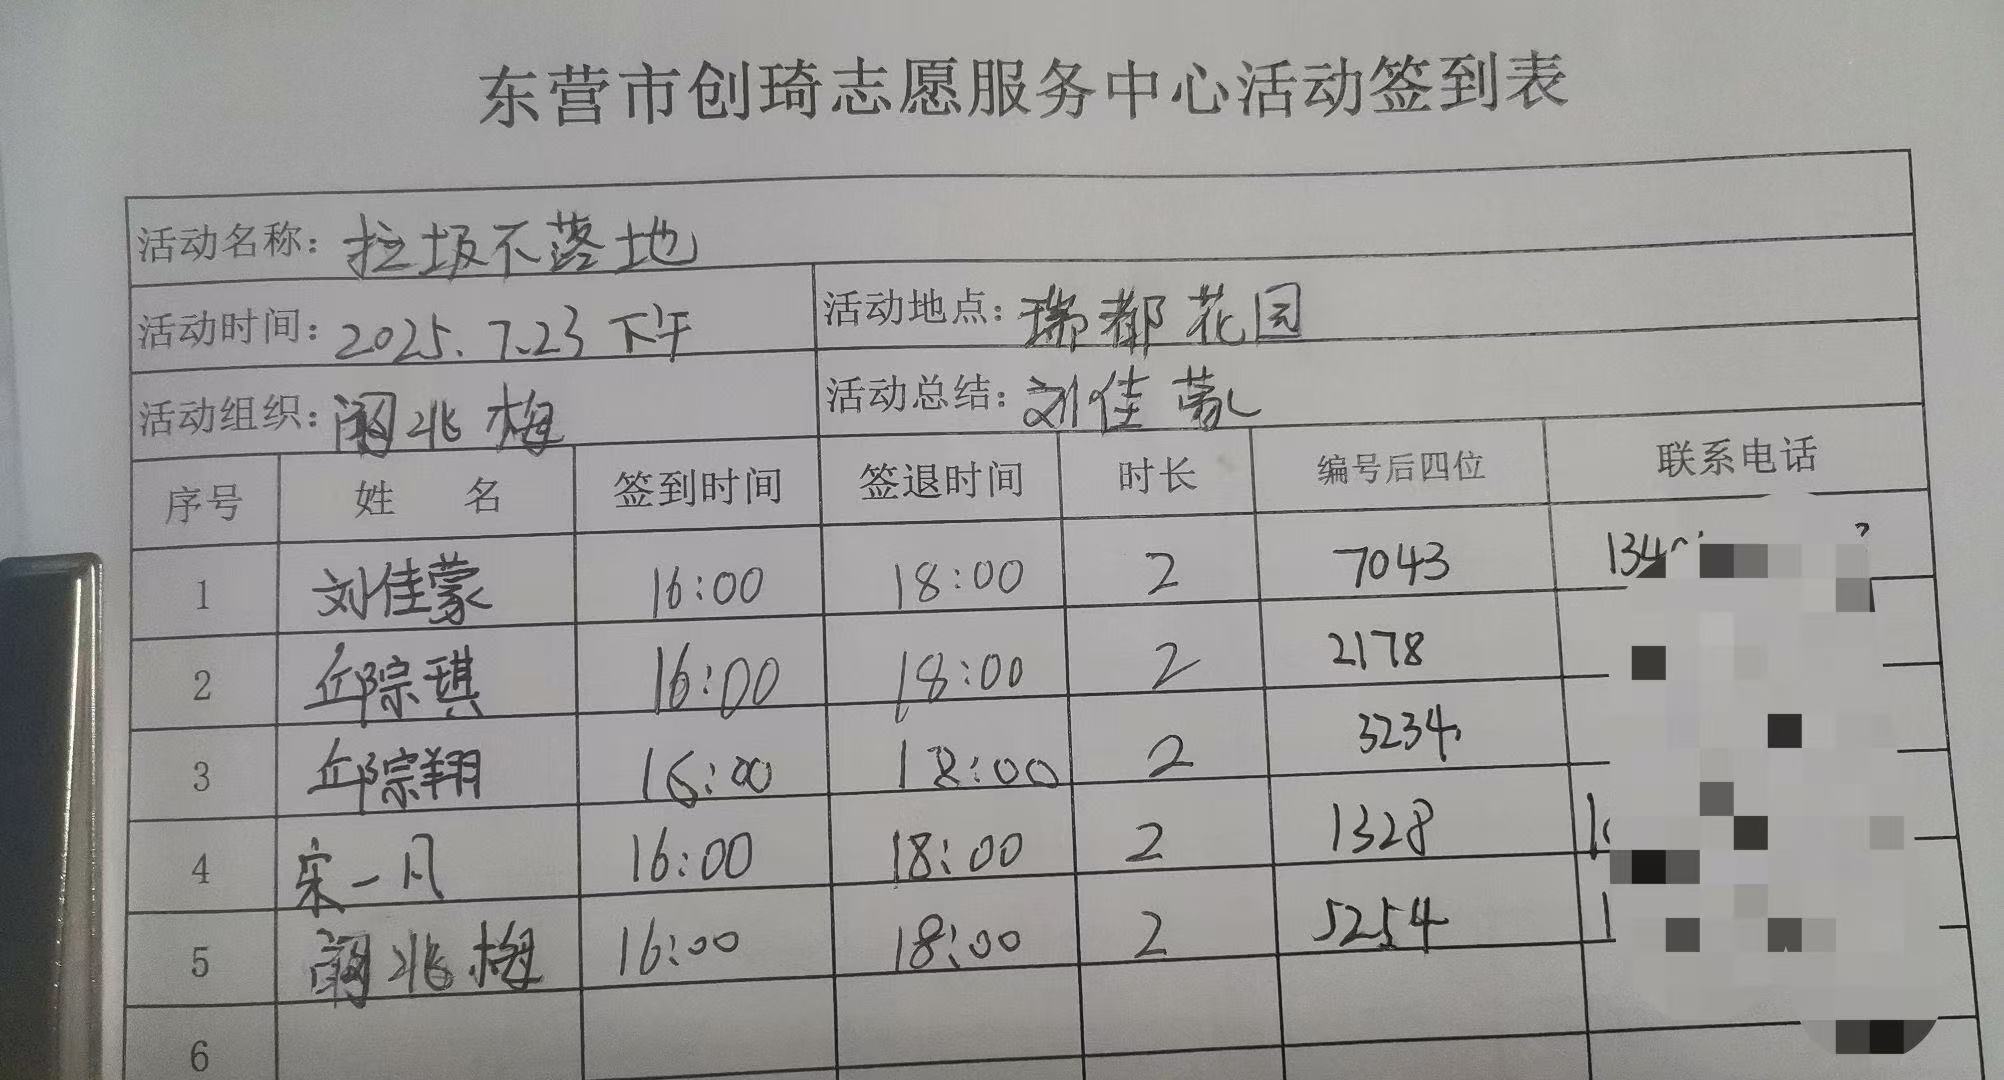 东营市创琦志愿服务中心活动签到表
活动名称：垃圾不落地
活动时间：2025.7.23下午 活动地点：瑞都花园
活动组织：阚兆梅 活动总结：刘佳蒙
序号 姓 名 签到时间 签退时间 时长 编号后四位 联系电话
1 刘佳蒙 16:00 18:00 2 7043 134
2 邱宗琪 16:00 18:00 2 2178
3 邱宗翔 16:00 18:00 2 3234
4 宋一凡 16:00 18:00 2 1328 1
5 阚兆梅 16:00 18:00 2 5254 1
6